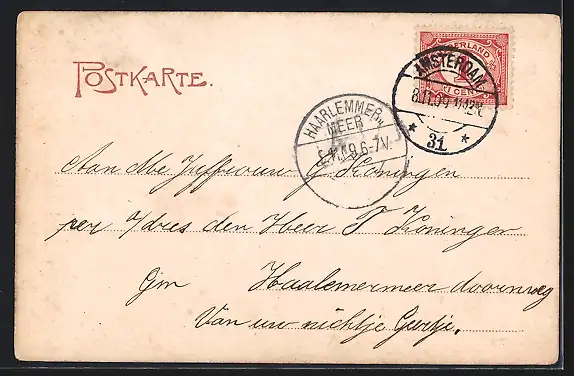 POSTKARTE.
NEDERLAND
1 CENT
AMSTERDAM
8.11.09
31
HAARLEMMER
MEER
6-7V.
Aan Mej Juffrouw G Koningen
per Adres den Heer T Koningen
Gm Haalemermeer doornweg
Van uw nichtje Geertje.